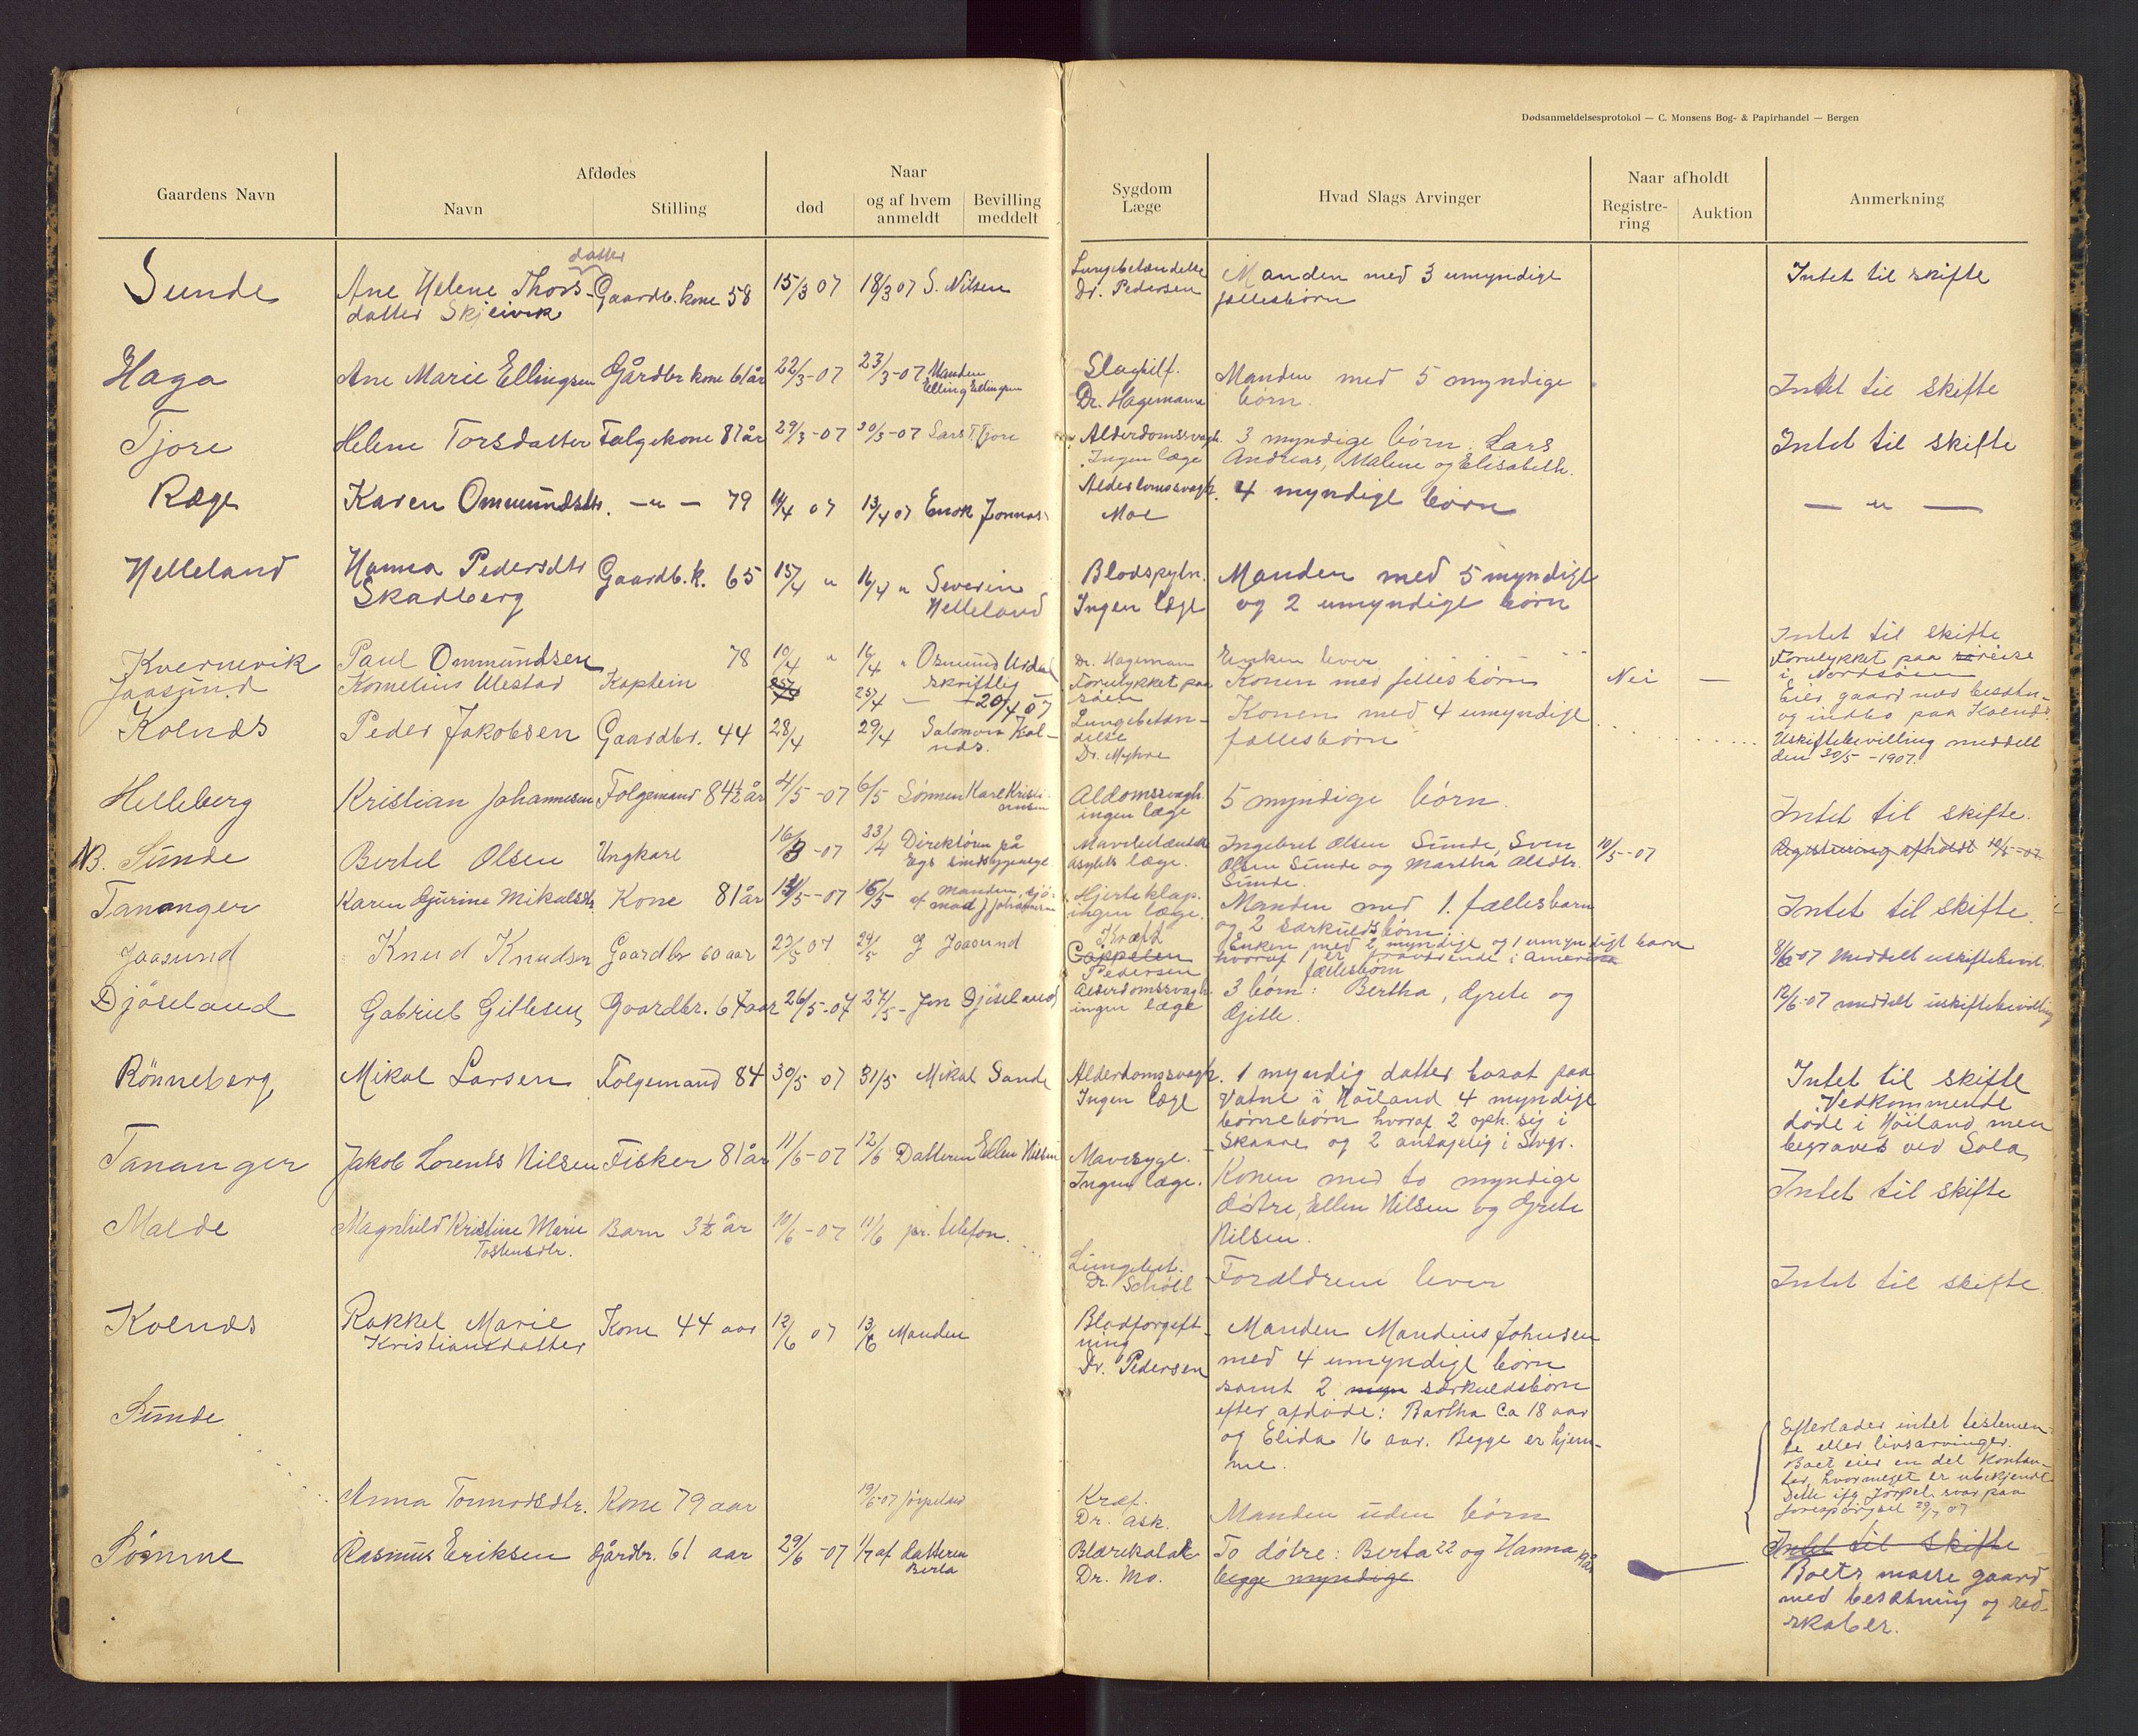 Dødsanmeldelsesprotokol — C. Monsens Bog- & Papirhandel — Bergen
Gaardens Navn
Afdødes
Navn
Stilling
Naar
død
og af hvem anmeldt
Bevilling meddelt
Sygdom
Læge
Hvad Slags Arvinger
Naar afholdt
Registre-
ring
Auktion
Anmerkning
Sunde
datter
Ane Helene Thors-
datter Skjeivik
Gaardb. kone 58
15/3 07
18/3 07 S. Nilsen
Lungebetændelse
Dr. Pedersen
Manden med 3 umyndige
fællesbörn
Intet til skifte
Haga
Ane Marie Ellingsen
Gårdbr kone 61 år
22/3-07
23/3-07 Manden
Elling Ellingsen
Slagtilf.
Dr. Hagemann
Manden med 5 myndige
börn.
Intet til skifte
Tjore
Helene Torsdatter
Følgekone 87 år
29/3-07
30/3-07 Lars T. Tjore
Alderdomssvagh.
Ingen læge
3 myndige börn. Lars
Andreas, Malene og Elisabeth.
Intet til skifte
Ræge
Karen Ommundsdtr.
— " — 79
11/4 07
13/4 07 Enok Jonnas
Alderdomssvagh.
Moe
4 myndige börn
— " —
Helleland
Hanna Pedersdtr
Skadberg
Gaardb. k. 65
15/4 "
16/4 " Severin
Helleland
Blodspytn.
Ingen læge
Manden med 5 myndige
og 2 umyndige börn
Kvernevik
Paul Ommundsen
78
10/4 "
16/4 " Osmund Urdal
Dr. Hageman
Enken lever
Intet til skifte
Jaasund
Kornelius Ulestad
Kaptein
skriftlig
25/4 — 20/4 07
Forulykket paa
söen
Konen med fellesbörn
Nei —
Forulykket paa reise
i Nordsöen
Kolnæs
Peder Jakobsen
Gaardbr. 44
28/4
29/4 Salomon Kol-
næs.
Lungebetæn-
delse
Dr. Myhre
Konen med 4 umyndige
fællesbörn
Eier gaard med besætn-
og indbo paa Kolnæs.
Uskiftebevilling meddelt
den 30/5 -1907.
Helleberg
Kristian Johannesen
Følgemand 84½ år
4/5 -07
6/5 Sønnen Karl Kristi-
ansen
Aldomssvagh.
ingen læge
5 myndige börn.
Intet til skifte.
NB. Sunde
Bertel Olsen
Ungkarl
16/3 -07
23/4 Direktören på
Egs sindssygeasyl
Asylets læge.
Ingebret Olsen Sunde, Sven
Olsen Sunde og Martha Olsdtr.
Sunde.
10/5 -07
Registrering afholdt 10/5-07
Tananger
Karen Gurine Mikalsdtr.
Kone 81 år
15/5 -07
16/5 af manden, sjö-
mand J Johannesen
Hjerteklap.
ingen læge.
Manden med 1. fællesbarn
og 2 særkuldsbörn.
Intet til skifte.
Jaasund
Knud Knudsen
Gaardbr 60 aar
23/5 07
24/5 G Jaasund
Kræft
Cappelen
Pedersen
Enken med 2 myndige og 1 umyndigt barn
hvoraf 1 er fraværende i Amerika
fællesbörn
8/6 07 Meddelt uskiftebevil.
Djöseland
Gabriel Gitlesen
Gaardbr. 64 aar
26/5-07
27/5 - Jon Djöseland
Alderdomssvagh.
ingen læge
3 börn: Bertha, Grete og
Gitle.
12/6-07 meddelt uskiftebevilling
Rönneberg
Mikal Larsen
Folgemand 84
30/5 07
31/5 Mikal Sande
Alderdomssvagh.
Ingen læge
1 myndig datter bosat paa
Vatne i Höiland 4 myndige
börnebörn hvoraf 2 oph. sig i
Skaare og 2 antagelig i Svgr.
Intet til skifte
Vedkommende
døde i Höiland men
begraves ved Sola
Tananger
Jakob Lorents Nilsen
Fisker 81 år
11/6-07
12/6 Datteren Ellen Nilsen
Mavesyge.
Ingen læge.
Konen med to myndige
døtre, Ellen Nilsen og Grete
Nilsen.
Intet til skifte
Malde
Magnhild Kristine Marie
Tostensdtr.
Barn 3½ år
10/6-07
11/6 pr. telefon.
Lungebet.
Dr. Schöll
Forældrene lever
Intet til skifte
Kolnæs
Rakkel Marie
Kristiansdatter
Kone 44 aar
12/6 07
13/6 Manden
Blodforgift-
ning
Dr. Pedersen
Manden Mandius Johnsen
med 4 umyndige börn
samt 2 myn særkuldsbörn
efter afdøde: Bertha Ca 18 aar
og Elida 16 aar. Begge er hjem-
me.
Sunde
Anna Tormodsdtr.
Kone 79 aar
19/6-07 Jörpeland
Kræf.
Dr. Ask.
Manden uden börn
Efterlader intet testemen-
te eller livsarvinger.
Boet eier en del kontan-
ter, hvormeget er ubekjendt
Dette ifg Jörpel. svar paa
forespörgsel 29/7 07
Sømme
Rasmus Eriksen
Gårdbr. 61 aar
29/6 -07
1/7 af Datteren
Berta
Blærekatak
Dr. Mo.
To dötre: Berta 22 og Hanna 19 år
begge myndige
Intet til skifte
Boets masse gaard
med besætning og red-
skaber.